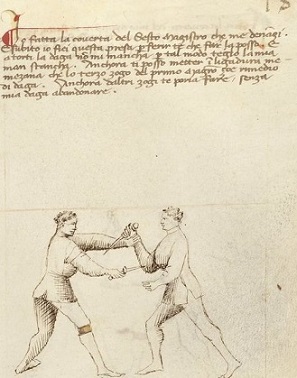 Io fatta la coverta del Sesto magistro che me denanzi.
E subito io fici questa presa p ferir te che far la posso. E
a torti la daga no mi mancha, p tal modo tegno la mia
man stancha. Anchora ti posso metter i ligadura me-
mezana che lo terzo zogo del primo magro che rimedio
di daga. Anchora d'altri zogi te poria fare, senza
mia daga abandonare.